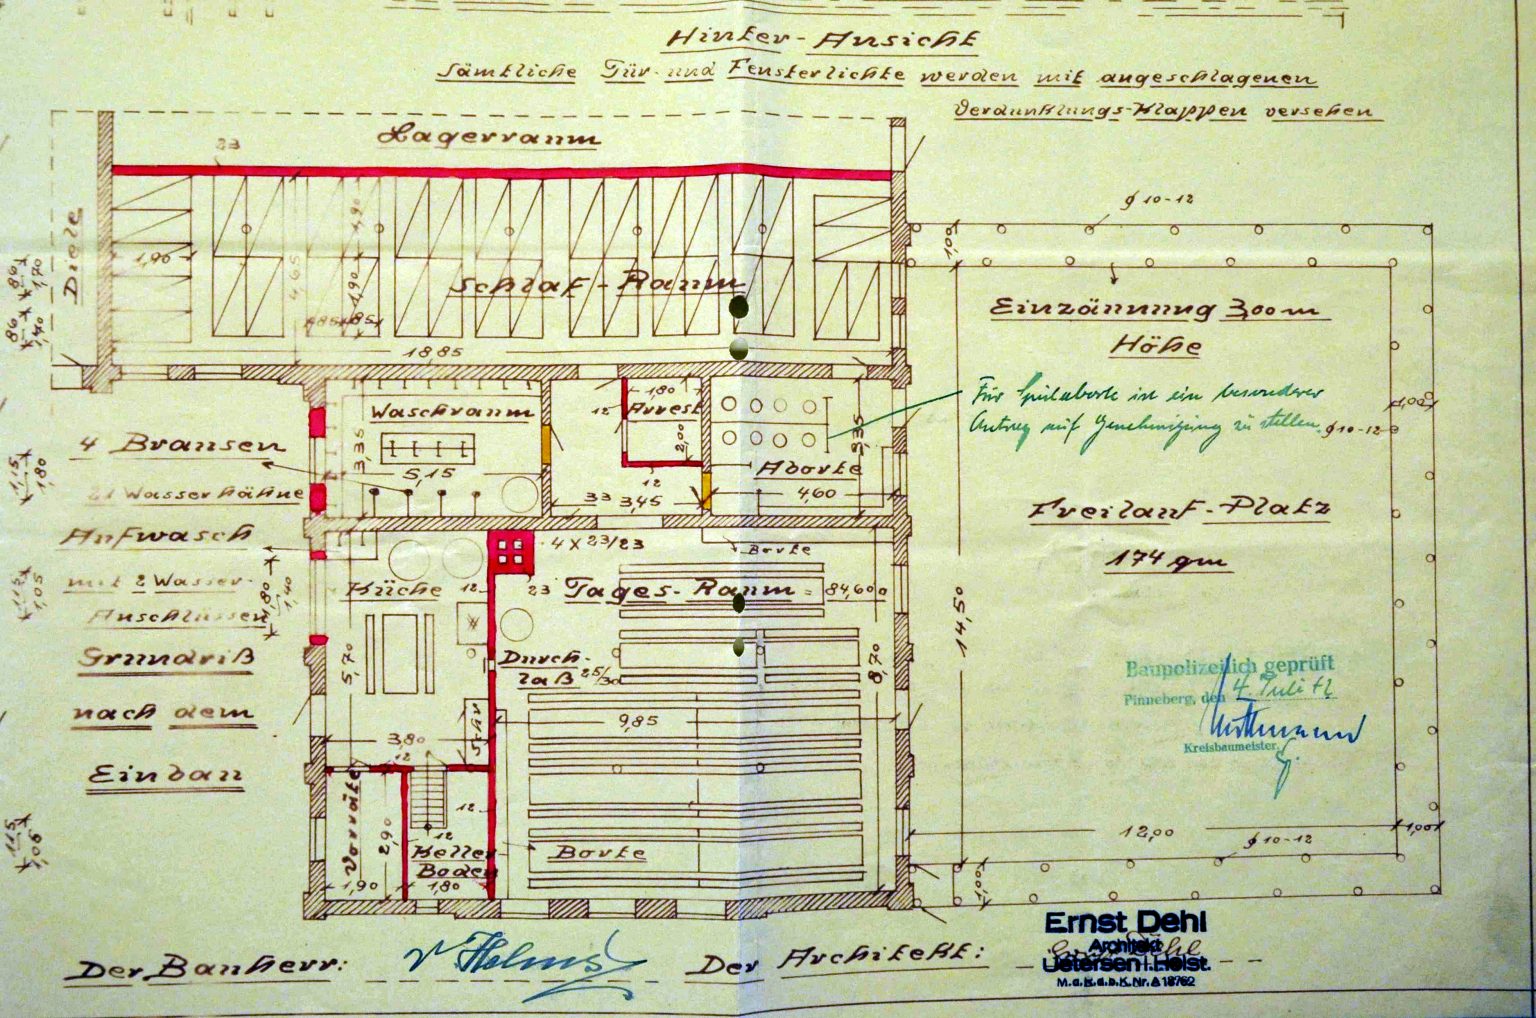 Hinter-Ansicht
Sämtliche Tür- und Fensterlichte werden mit angeschlagenen
Verdunklungs-Klappen versehen
Lagerraum
23
Diele
1,90
4,65
1,90
1,90
Schlaf-Raum
18,85
86
1,70
86
1,70
ϕ 10-12
1,00
Einzäunung 3,00 m
Höhe
Für Spülaborte ist ein besonderer
Antrag auf Genehmigung zu stellen.
1,00
ϕ 10-12
Waschraum
3,35
5,15
12
1,80
Arrest
2,00
12
33
3,45
3,35
Aborte
4,60
4 Brausen
21 Wasserhähne
Aufwasch
mit 2 Wasser-
Anschlüssen
1,15
1,80
1,15
1,05
1,80
1,40
Grundriß
nach dem
Einbau
Freilauf-Platz
174 qm
4 x 23/23
Borte
Küche
12
23
Tages-Raum = 84,60
5,70
Durch-
laß
25/30
8,70
14,50
9,85
Schr
3,80
12
Baupolizeilich geprüft
Pinneberg, den 4. Juli 42
Kreisbaumeister.
Vorräte
2,90
12
12
Keller
Boden
Borte
1,90
1,80
12,00
1,00
ϕ 10-12
1,00
1,15
1,05
Der Bauherr:
Der Architekt:
Ernst Dehl
Architekt
Uetersen i. Holst.
M.d.R.d.b.K. Nr. A 18762